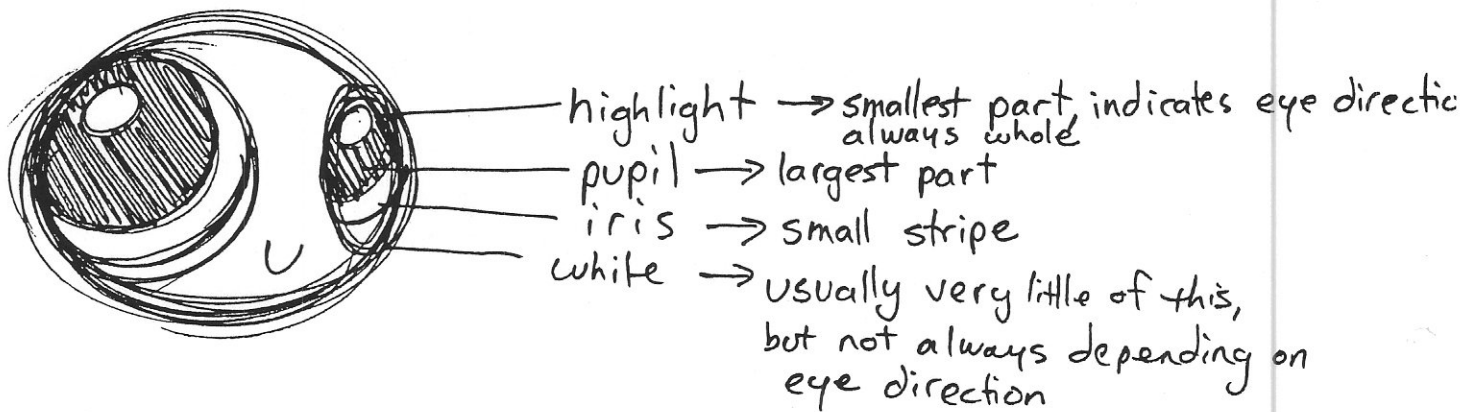 highlight → smallest part, indicates eye directio
always whole
pupil → largest part
iris → small stripe
white → usually very little of this,
but not always depending on
eye direction